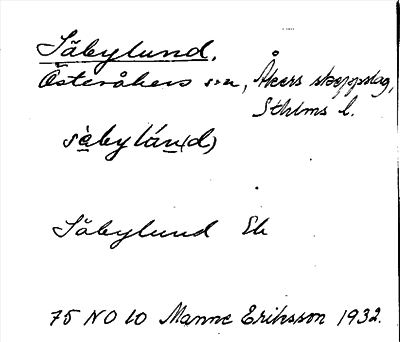 Säbylund,
Österåkers s:n, Åkers skeppslag,
Sthlms l.
sä̀bylán(d)
Säbylund Ek
75 NO 10 Manne Eriksson 1932.